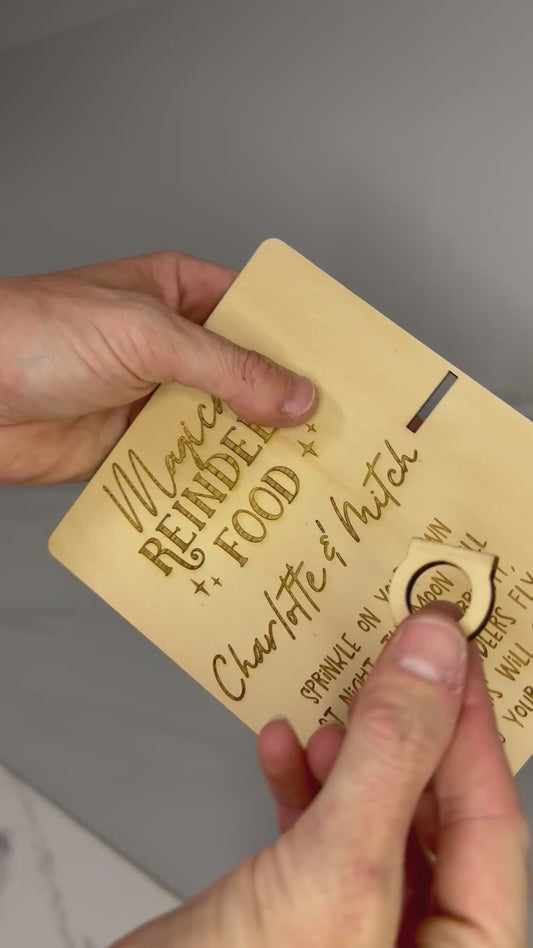 Magica
REINDEE
FOOD
Charlotte & Mitch
SPRINKLE ON YO WN
MOON LL
NIGHT BRIGHT,
DEERS FLY
WILL
YOUR